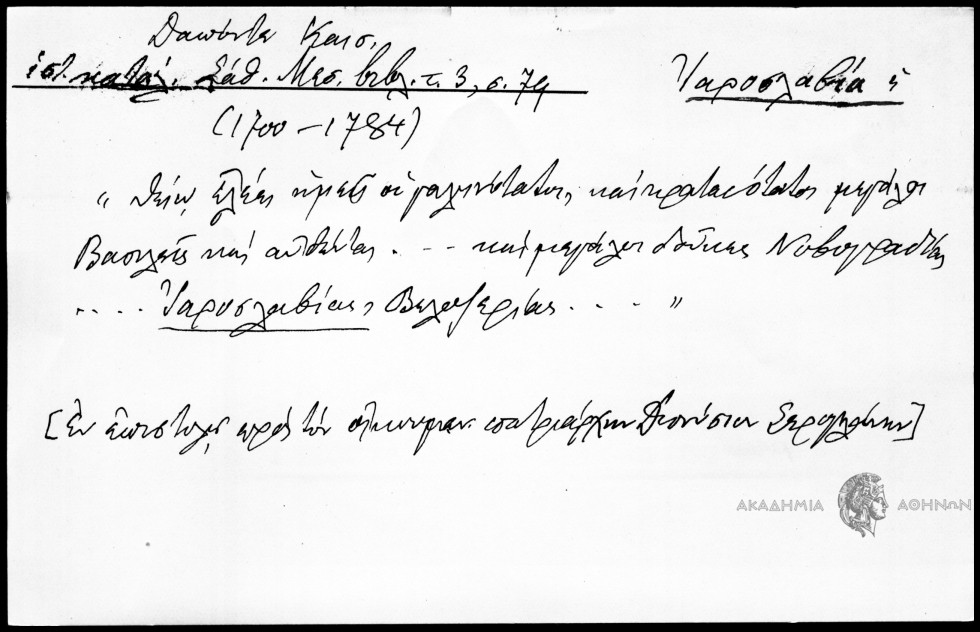 Δαπόντε Καισ.
ἱστ. κατάλ. Σάθ. Μεσ. βιβλ. τ. 3, σ. 79
Ἰαροσλαβία ἡ
(1700 – 1784)
" θείῳ ἐλέει ἡμεῖς οἱ γαληνότατοι, καὶ κραταιότατοι μεγάλοι
Βασιλεῖς καὶ αὐθένται . . . καὶ μεγάλοι δοῦκες Νοβογραδίας
. . . . Ἰαροσλαβίας, Βελοζερίας . . . . "
[Ἐν ἐπιστολῇ πρὸς τὸν οἰκουμεν. πατριάρχην Διονύσιον Σερογλάνην]
ΑΚΑΔΗΜΙΑ ΑΘΗΝΩΝ